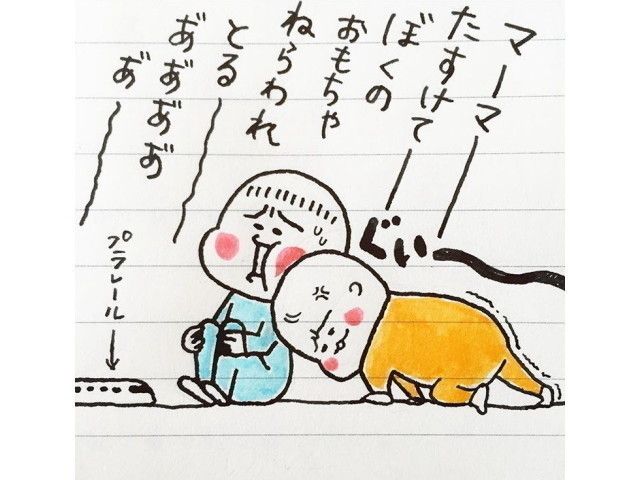 マーマ
たすけて
ぼくの
おもちゃ
ねらわれ
とる
あ゛あ゛あ゛あ゛
あ゛
ぐい
プラレール